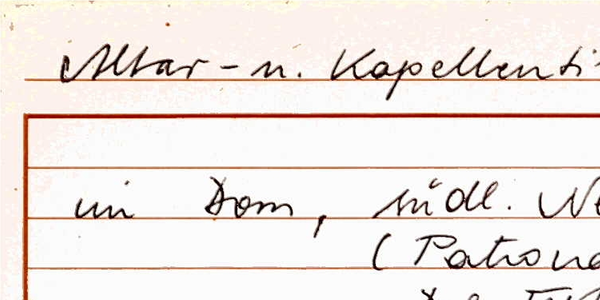 Altar- u. Kapellenti
im Dom, südl. Ne
(Patrona